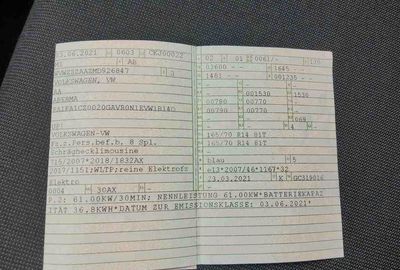 03.06.2021 0603 CKJ00022
02 01 0061/- 130
M1 AB
03600 - - 1645
WVWZZZAAZMD926847
1481 - - 001235 - -
VOLKSWAGEN, VW
- 001530 1530
AA
00780 00770
ABEAMA
00780 00770
- 068
4 -
UP!
165/70 R14 81T
VOLKSWAGEN-VW
165/70 R14 81T
Fz.z.Pers.bef.b. 8 Spl.
Schräghecklimousine
blau 5
715/2007*2018/1832AX
e13*2007/46*1167*32
2017/1151;WLTP;reine Elektrofz
23.03.2021 K GC319016
Elektro
0004 30AX -
P.2: 61.00KW/30MIN; NENNLEISTUNG 61.00KW*BATTERIEKAPAZ
ITÄT 36,8KWH*DATUM ZUR EMISSIONSKLASSE: 03.06.2021*